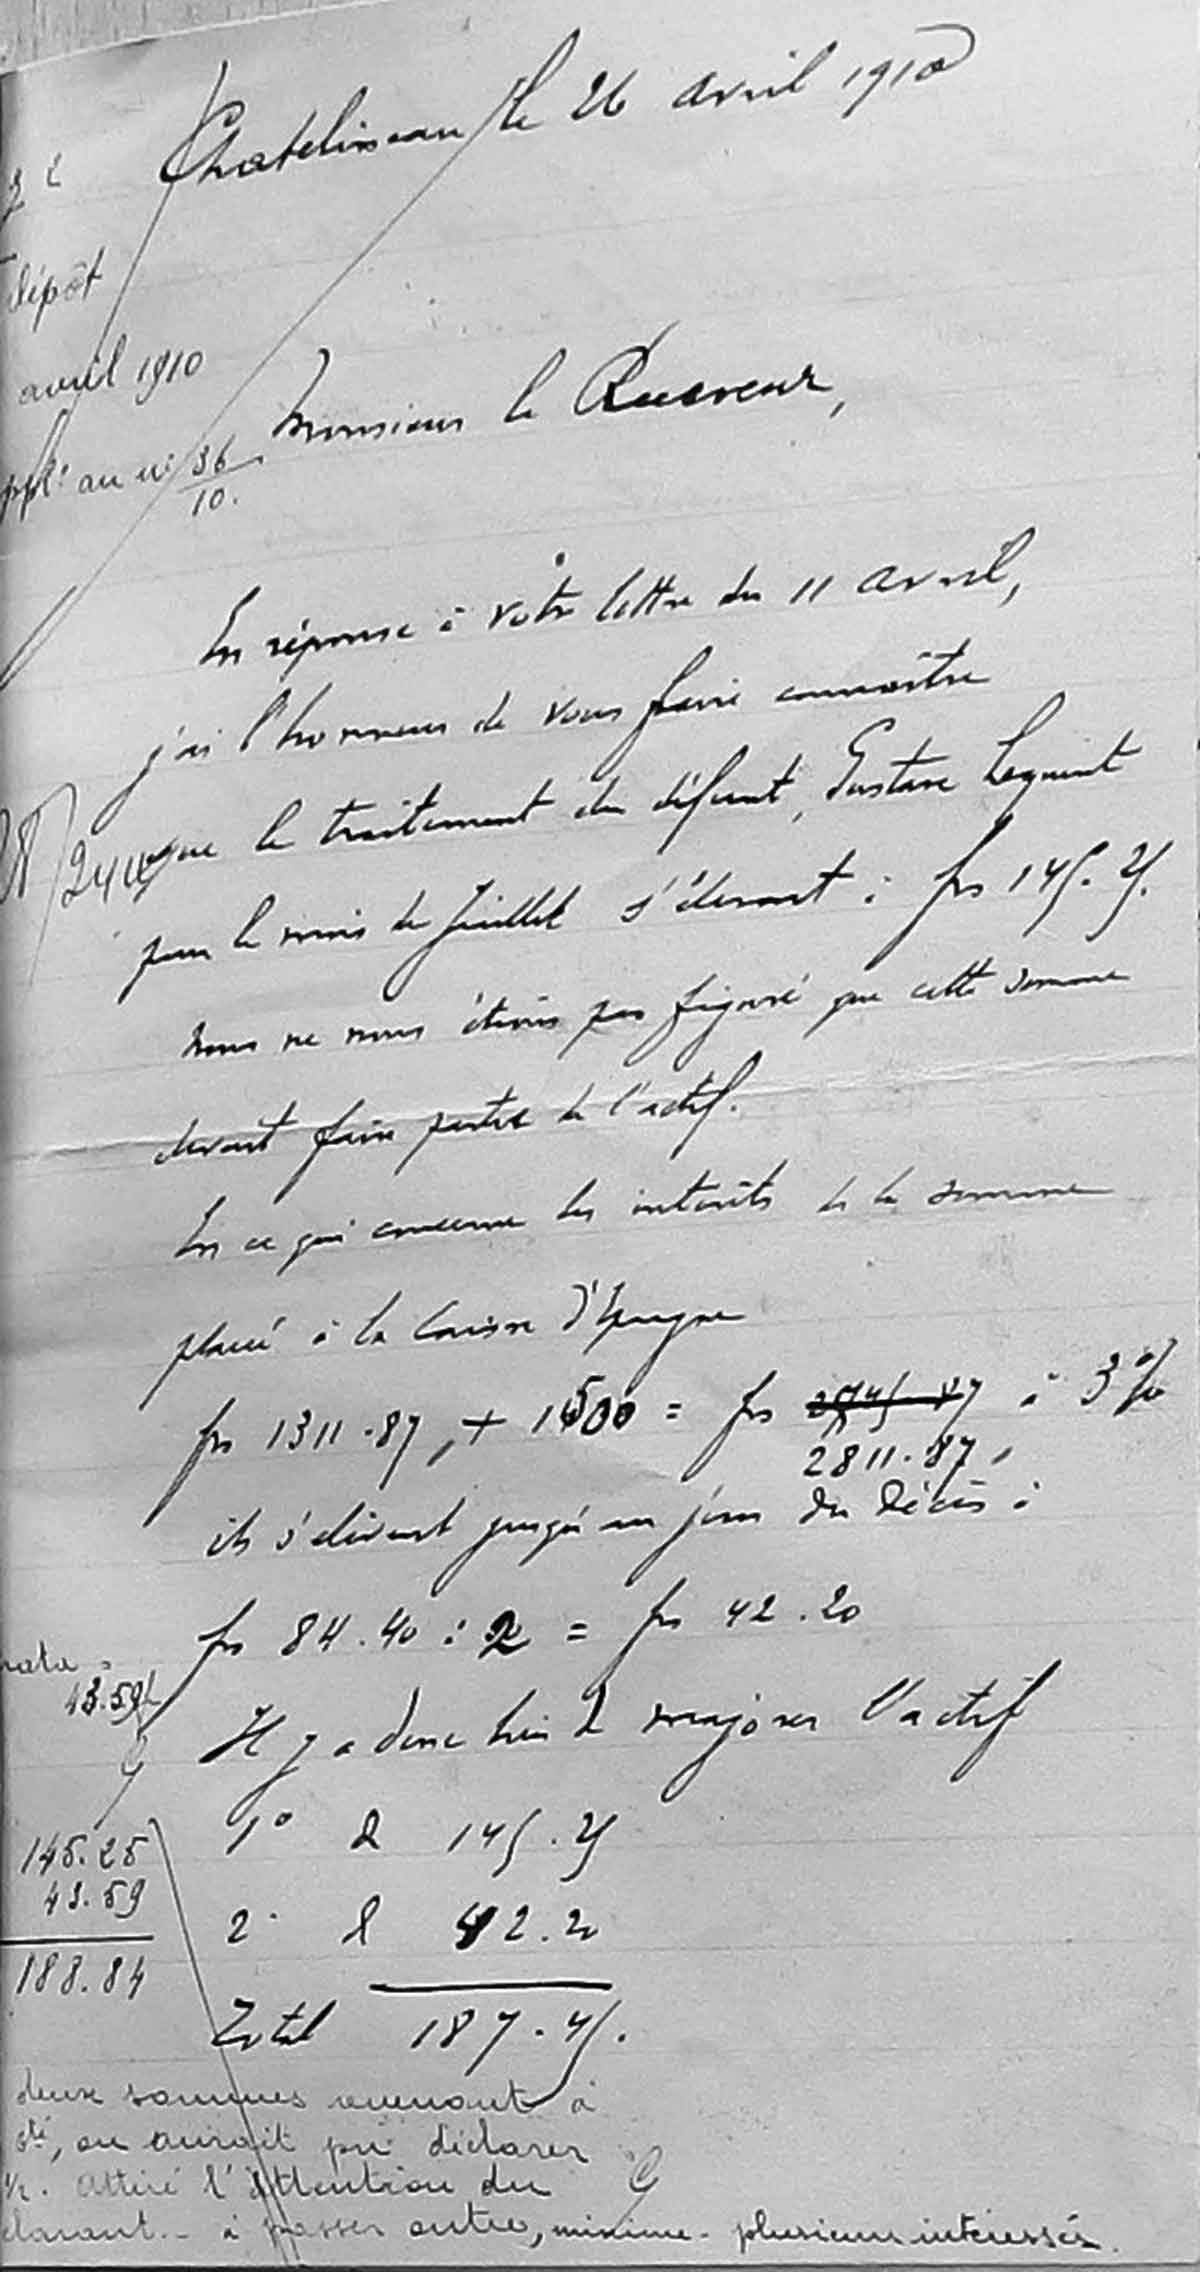 Chatelineau le 26 avril 1910
dépôt
avril 1910
au n° 36/10.
Monsieur le Receveur,
En réponse à votre lettre du 11 avril,
j'ai l'honneur de vous faire connaître
que le traitement du défunt, Gustave Lequint
pour le mois de Juillet s'élevait à frs 145.25.
Nous ne nous étions pas figuré que cette somme
devait faire partie de l'actif.
En ce qui concerne les intérêts de la somme
placée à la Caisse d'Epargne
frs 1311.87, + 1500 = frs 2811.87, à 3%
ils s'élèvent jusqu'au jour du décès à
frs 84.40 : 2 = frs 42.20
43.59
Il y a donc lieu de majorer l'actif
1° de 145.25
2° de 42.20
Total 187.45.
145.25
43.59
188.84
deux sommes revenant à
té, on aurait pu déclarer
1/2. Attiré l'attention du
clarant.- à passer outre, minime - plusieurs intéressés.